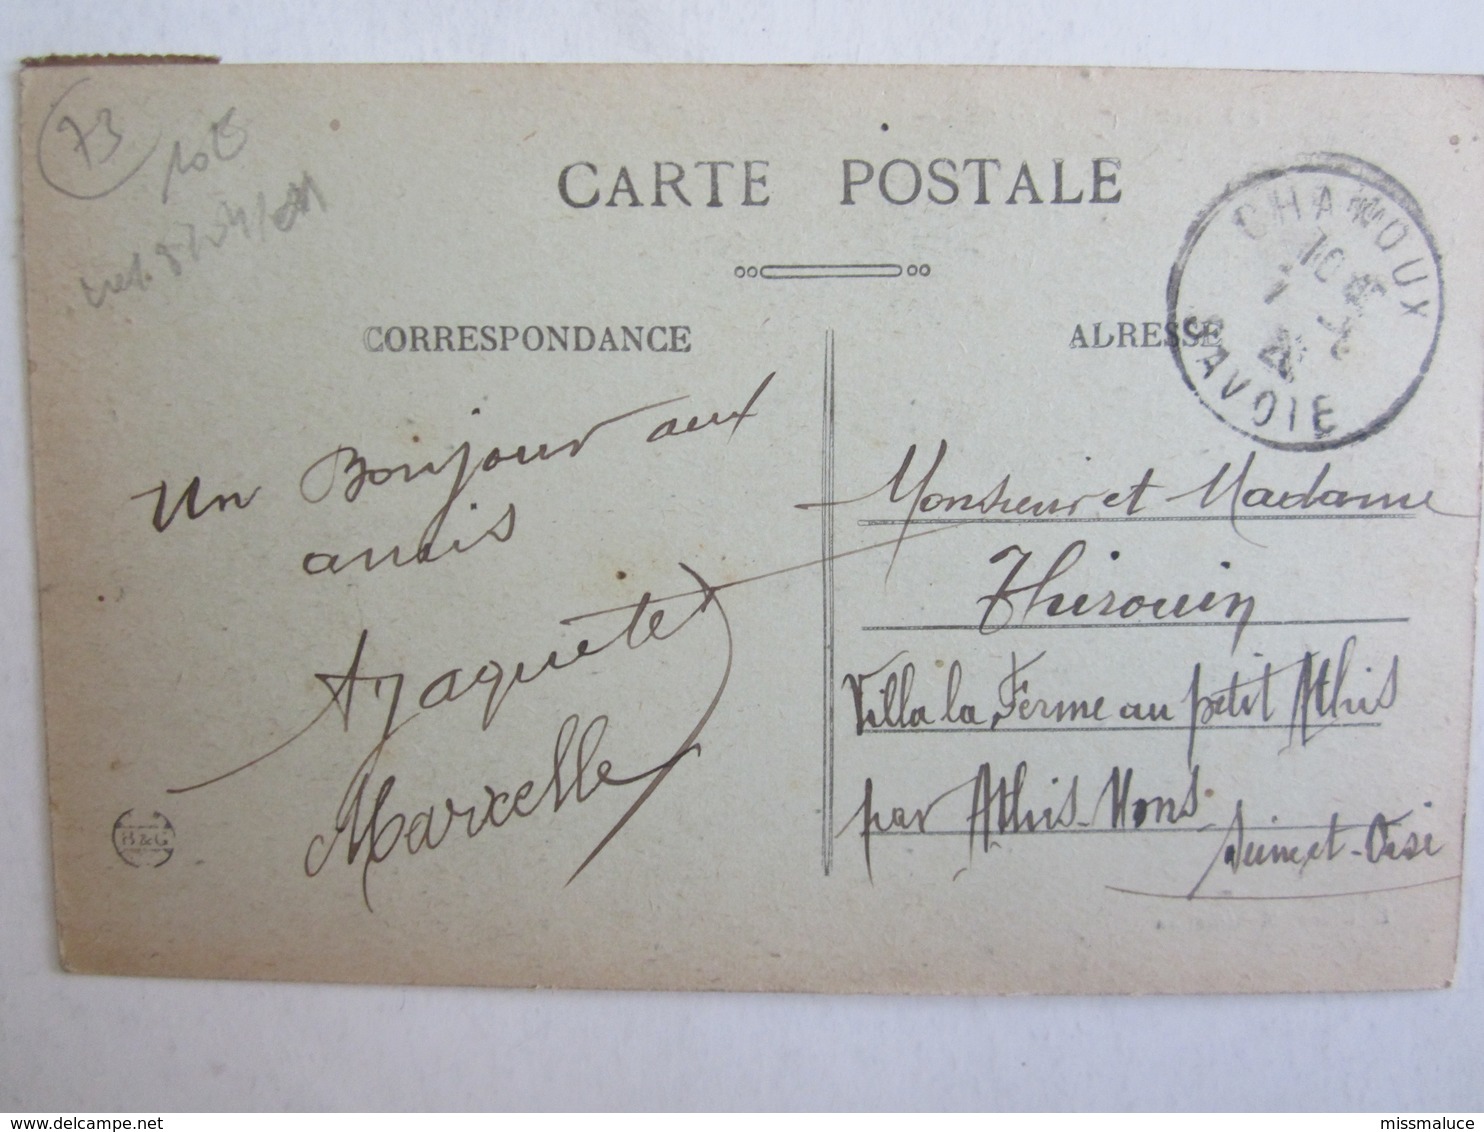 73
CARTE POSTALE
CHAMOUX
SAVOIE
CORRESPONDANCE
ADRESSE
Un Bonjour aux
amis
A Jaquete
Marcelle
B&G
Monsieur et Madame
Thirouin
Villa la Ferme au petit Athis
par Athis-Mons
Seine et-Oise
missmaluce